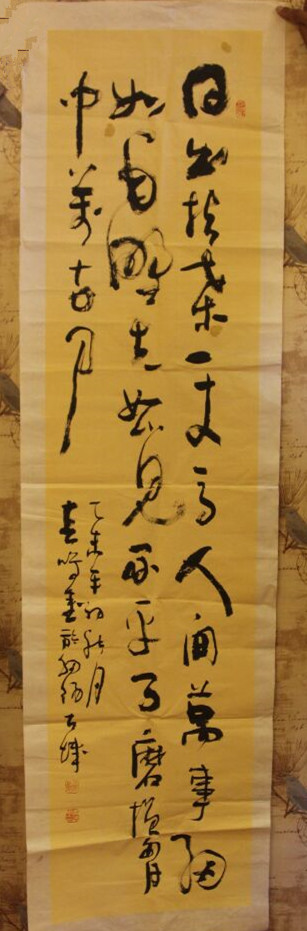 日出扶桑一丈高人间萬事細
如毛野夫怒見不平處磨損胸
中萬古刀
乙未年初秋月